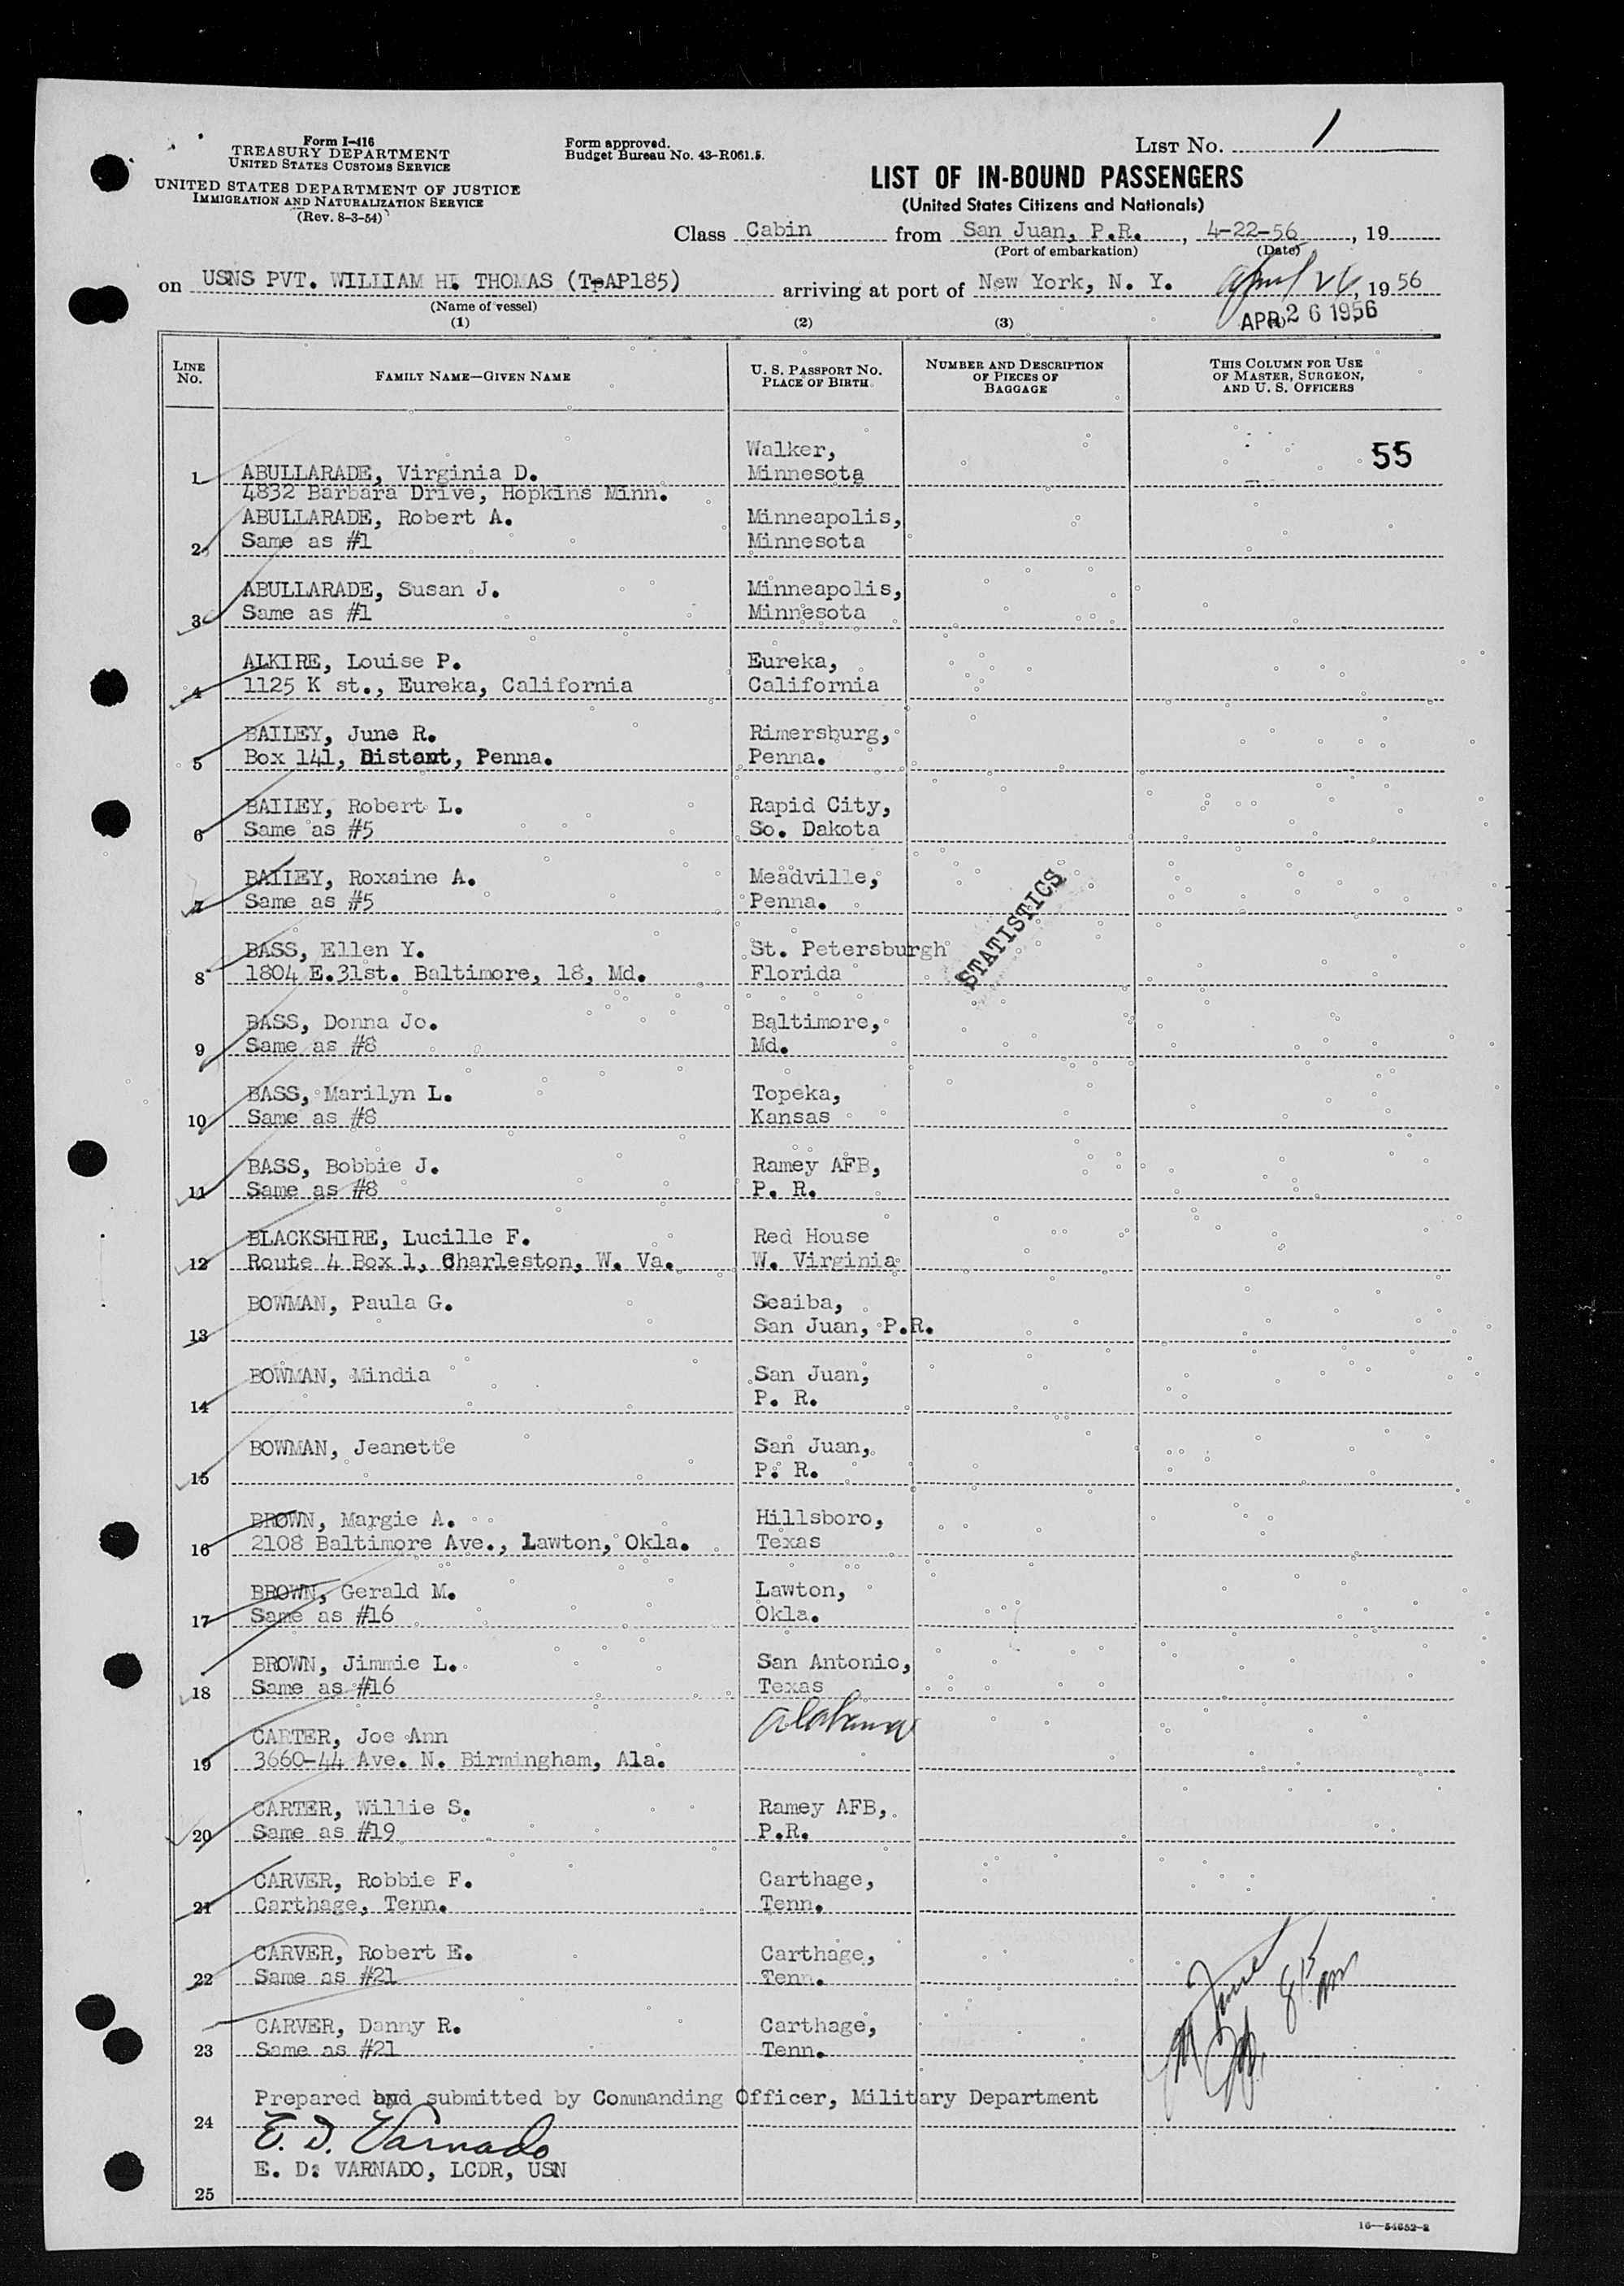 Form I-416
TREASURY DEPARTMENT
UNITED STATES CUSTOMS SERVICE
UNITED STATES DEPARTMENT OF JUSTICE
IMMIGRATION AND NATURALIZATION SERVICE
(Rev. 8-3-54)
Form approved.
Budget Bureau No. 43-R061.5.
LIST No. 1
LIST OF IN-BOUND PASSENGERS
(United States Citizens and Nationals)
Class Cabin from San Juan, P.R., 4-22-56, 19
(Port of embarkation) (Date)
on USNS PVT. WILLIAM H. THOMAS (T-AP185) arriving at port of New York, N. Y. April 26, 1956
(Name of vessel)
APR 26 1956
(1) (2) (3)
LINE No. FAMILY NAME—GIVEN NAME U. S. PASSPORT No. PLACE OF BIRTH NUMBER AND DESCRIPTION OF PIECES OF BAGGAGE THIS COLUMN FOR USE OF MASTER, SURGEON, AND U. S. OFFICERS
55
Walker,
1 ABULLARADE, Virginia D. Minnesota
4832 Barbara Drive, Hopkins Minn.
ABULLARADE, Robert A. Minneapolis,
2 Same as #1 Minnesota
ABULLARADE, Susan J. Minneapolis,
3 Same as #1 Minnesota
ALKIRE, Louise P. Eureka,
4 1125 K st., Eureka, California California
BAILEY, June R. Rimersburg,
5 Box 141, Distant, Penna. Penna.
BAILEY, Robert L. Rapid City,
6 Same as #5 So. Dakota
BAILEY, Roxaine A. Meadville,
7 Same as #5 Penna.
STATISTICS
BASS, Ellen Y. St. Petersburgh
8 1804 E.31st. Baltimore, 18, Md. Florida
BASS, Donna Jo. Baltimore,
9 Same as #8 Md.
BASS, Marilyn L. Topeka,
10 Same as #8 Kansas
BASS, Bobbie J. Ramey AFB,
11 Same as #8 P. R.
BLACKSHIRE, Lucille F. Red House
12 Route 4 Box 1, Charleston, W. Va. W. Virginia
BOWMAN, Paula G. Seaiba,
13 San Juan, P.R.
BOWMAN, Mindia San Juan,
14 P. R.
BOWMAN, Jeanette San Juan,
15 P. R.
BROWN, Margie A. Hillsboro,
16 2108 Baltimore Ave., Lawton, Okla. Texas
BROWN, Gerald M. Lawton,
17 Same as #16 Okla.
BROWN, Jimmie L. San Antonio,
18 Same as #16 Texas
CARTER, Joe Ann Alabama
19 3660-44 Ave. N. Birmingham, Ala.
CARTER, Willie S. Ramey AFB,
20 Same as #19 P.R.
CARVER, Robbie F. Carthage,
21 Carthage, Tenn. Tenn.
CARVER, Robert E. Carthage,
22 Same as #21 Tenn.
CARVER, Danny R. Carthage,
23 Same as #21 Tenn.
Prepared and submitted by Commanding Officer, Military Department
24
E. D. Varnado
E. D. VARNADO, LCDR, USN
25
16—54652-2